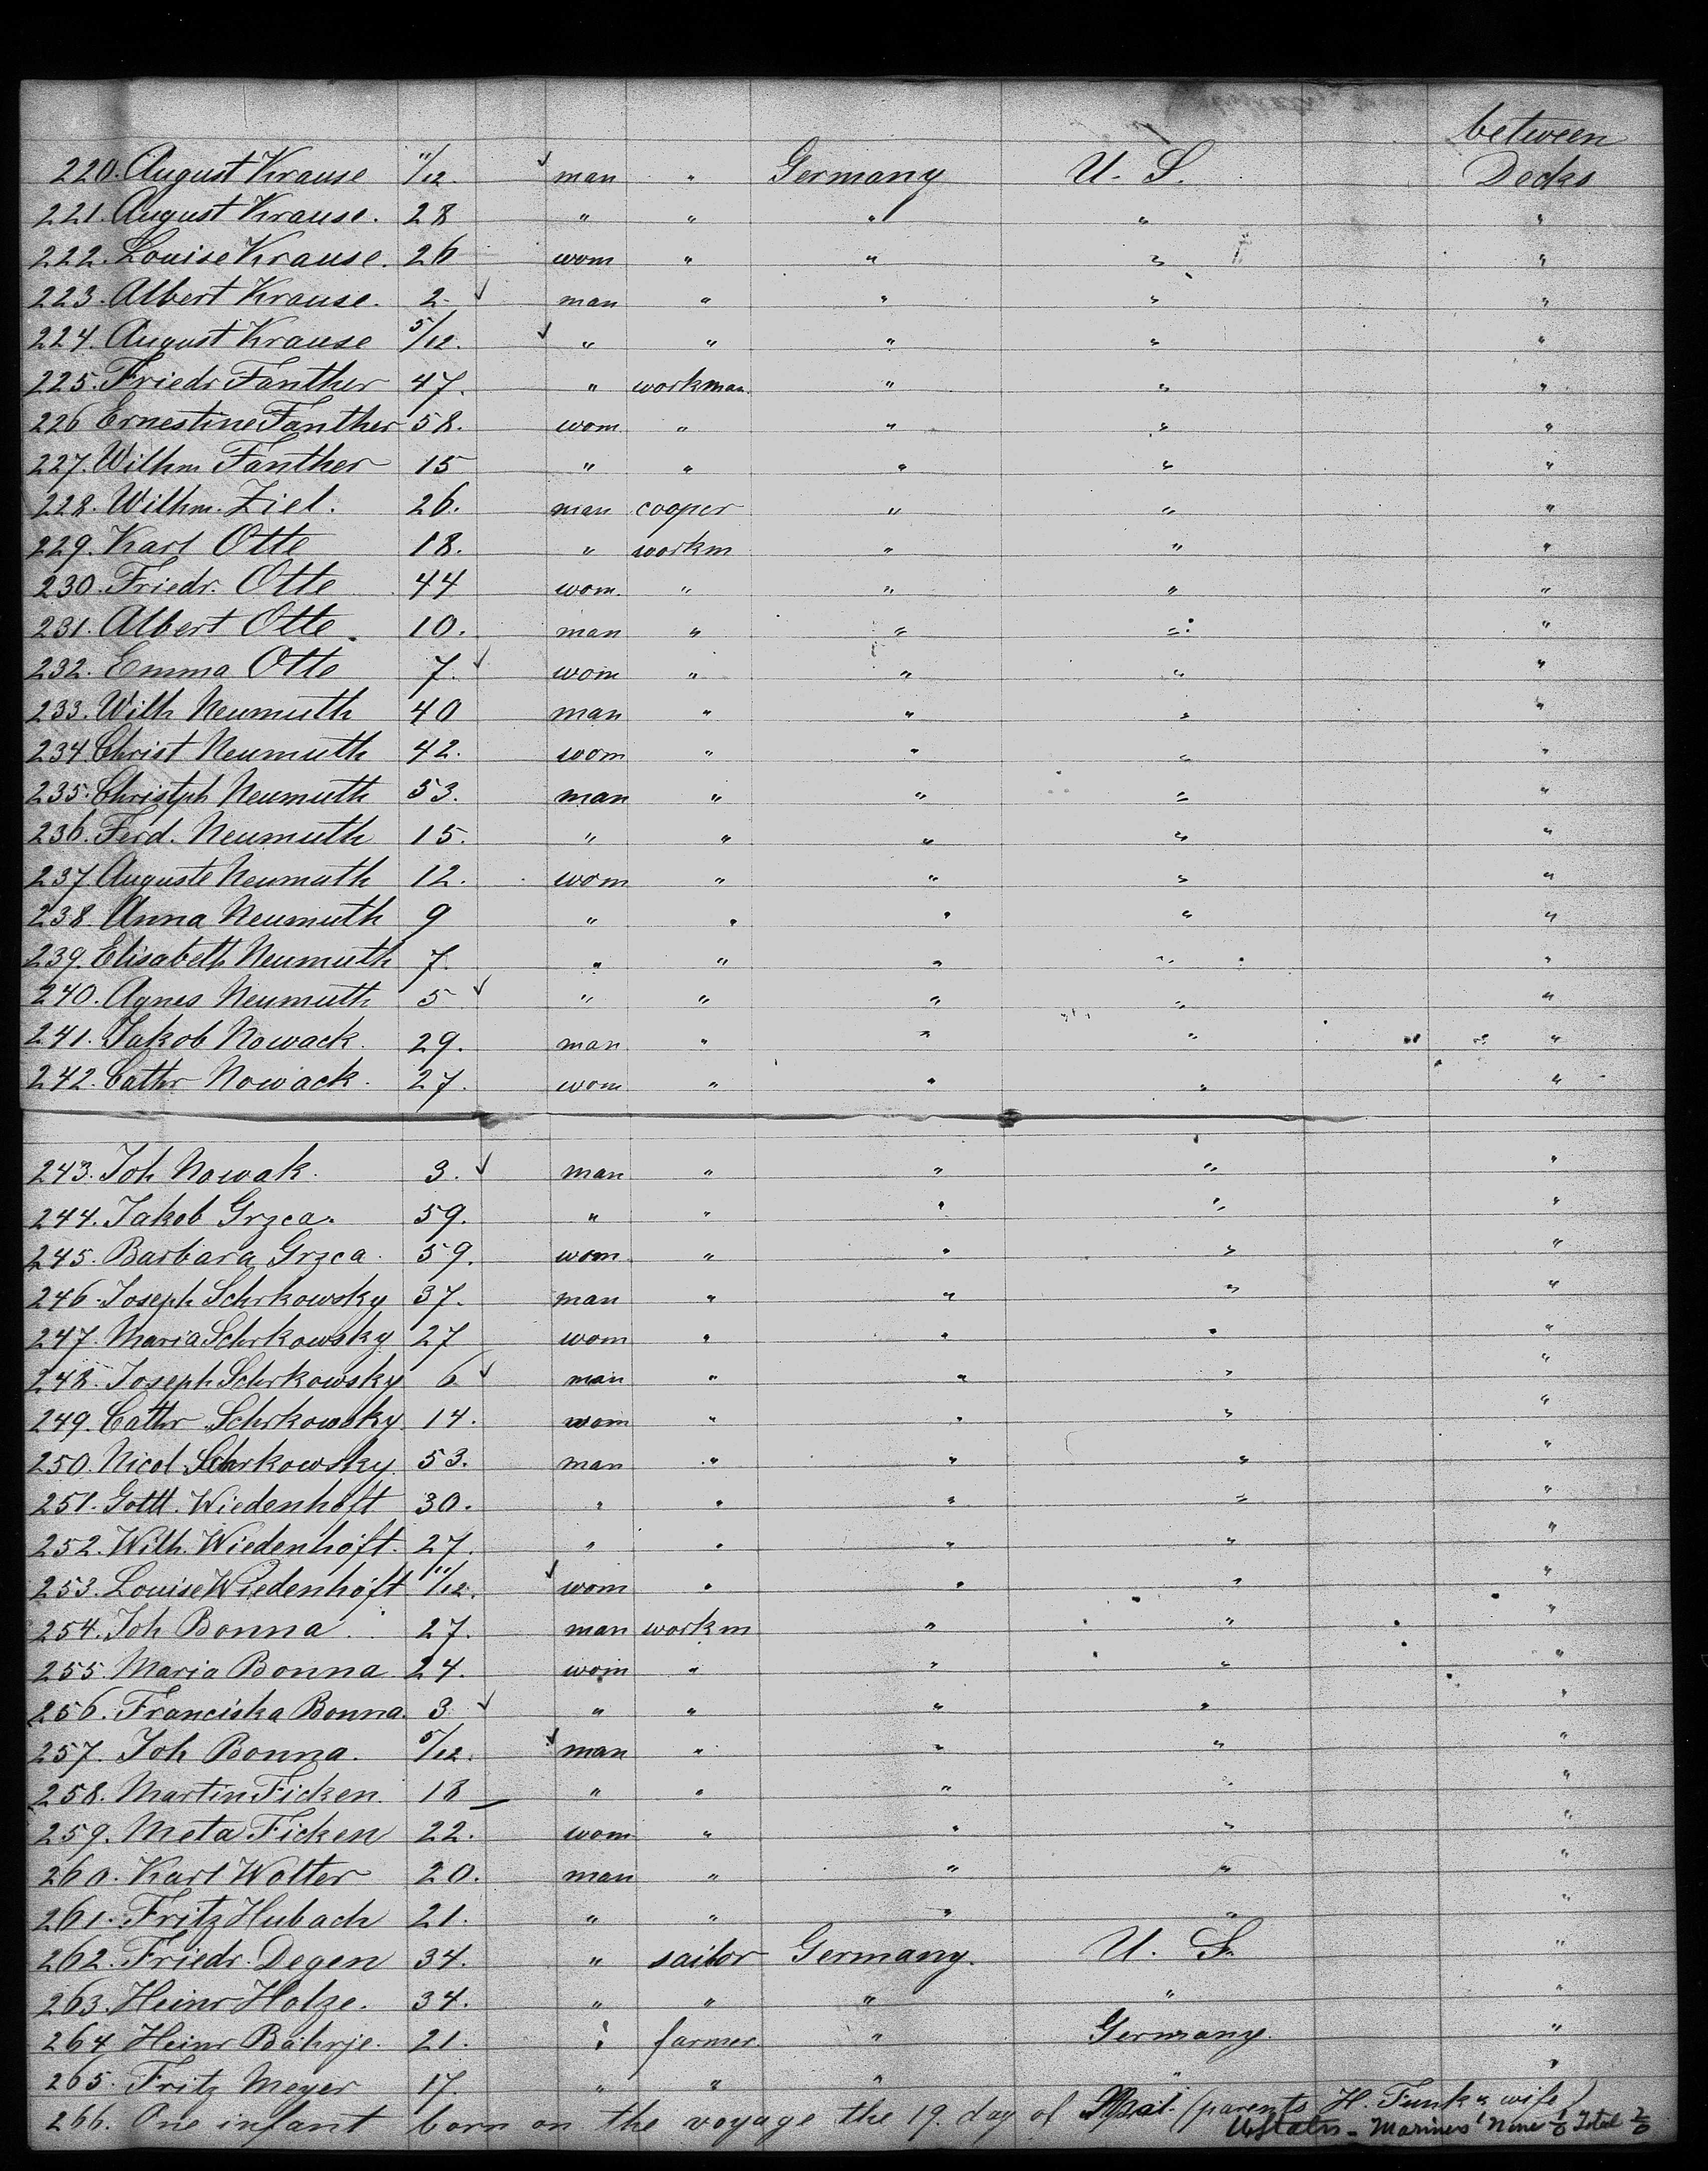 between
220. August Krause 11/12. man " Germany U. S. Decks
221. August Krause. 28 " " " " "
222. Louise Krause. 26 wom " " " "
223. Albert Krause. 2. man " " " "
224. August Krause 5/12. " " " " "
225. Friedr Fanther 47. " workman. " " "
226 Ernestine Fanther 58. wom. " " " "
227. Wilhm Fanther 15 " " " " "
228. Wilhm. Ziel. 26. man cooper " " "
229. Karl Otte 18. " workm " " "
230. Friedr. Otte 44 wom. " " " "
231. Albert Otte. 10. man " " " "
232. Emma Otte 7. wom " " " "
233. Wilh Neumuth 40 man " " " "
234 Christ Neumuth 42. wom " " " "
235. Christph Neumuth 53. man " " " "
236. Ferd. Neumuth 15. " " " " "
237 Auguste Neumuth 12. wom " " " "
238. Anna Neumuth 9 " " " " "
239. Elisabeth Neumuth 7. " " " " "
240. Agnes Neumuth 5 " " " " "
241. Jakob Nowack. 29. man " " " "
242. Cathr Nowack. 27. wom " " " "
243. Joh Nowak. 3. man " " " "
244. Jakob Grzca. 59. " " " " "
245. Barbara Grzca. 59. wom " " " "
246. Joseph Schrkowsky 37. man " " " "
247. Maria Schrkowsky 27 wom " " " "
248. Joseph Schrkowsky 6 man " " " "
249. Cathr Schrkowsky. 14. wom " " " "
250. Nicol Schrkowsky. 53. man " " " "
251. Gottl. Wiedenhöft 30. " " " " "
252. Wilh. Wiedenhöft. 27. " " " " "
253. Louise Wiedenhöft 11/12. wom " " " "
254. Joh Bonna. 27. man workm " " "
255. Maria Bonna 24. wom " " " "
256. Franciska Bonna. 3. " " " " "
257. Joh Bonna. 5/12. man " " " "
258. Martin Ficken. 18 " " " " "
259. Meta Ficken 22. wom " " " "
260. Karl Wolter 20. man " " " "
261. Fritz Hubach 21. " " " " "
262. Friedr. Degen 34. " sailor Germany. U. S. "
263. Heinr Holze. 34. " " " " "
264 Heinr Bährje. 21. " farmer. " Germany. "
265. Fritz Meyer 17. " " " " "
266. One infant born on the voyage the 19. day of (parents H. Funk & wife)
Ustates - Mariners None Total